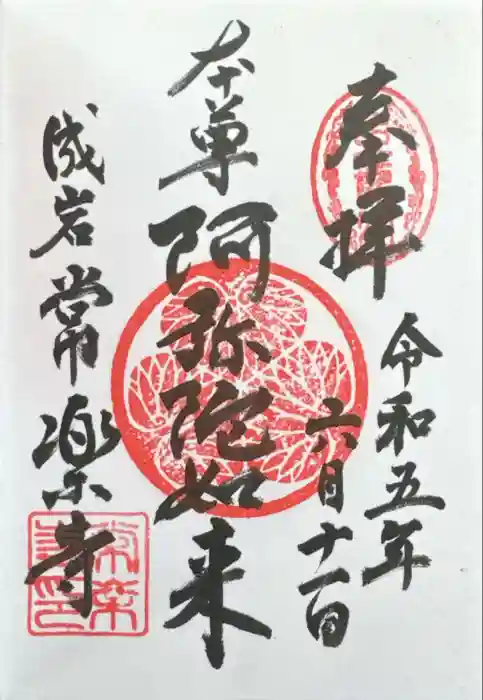 奉拝
令和五年
六月十一日
本尊 阿弥陀如来
成岩 常楽寺